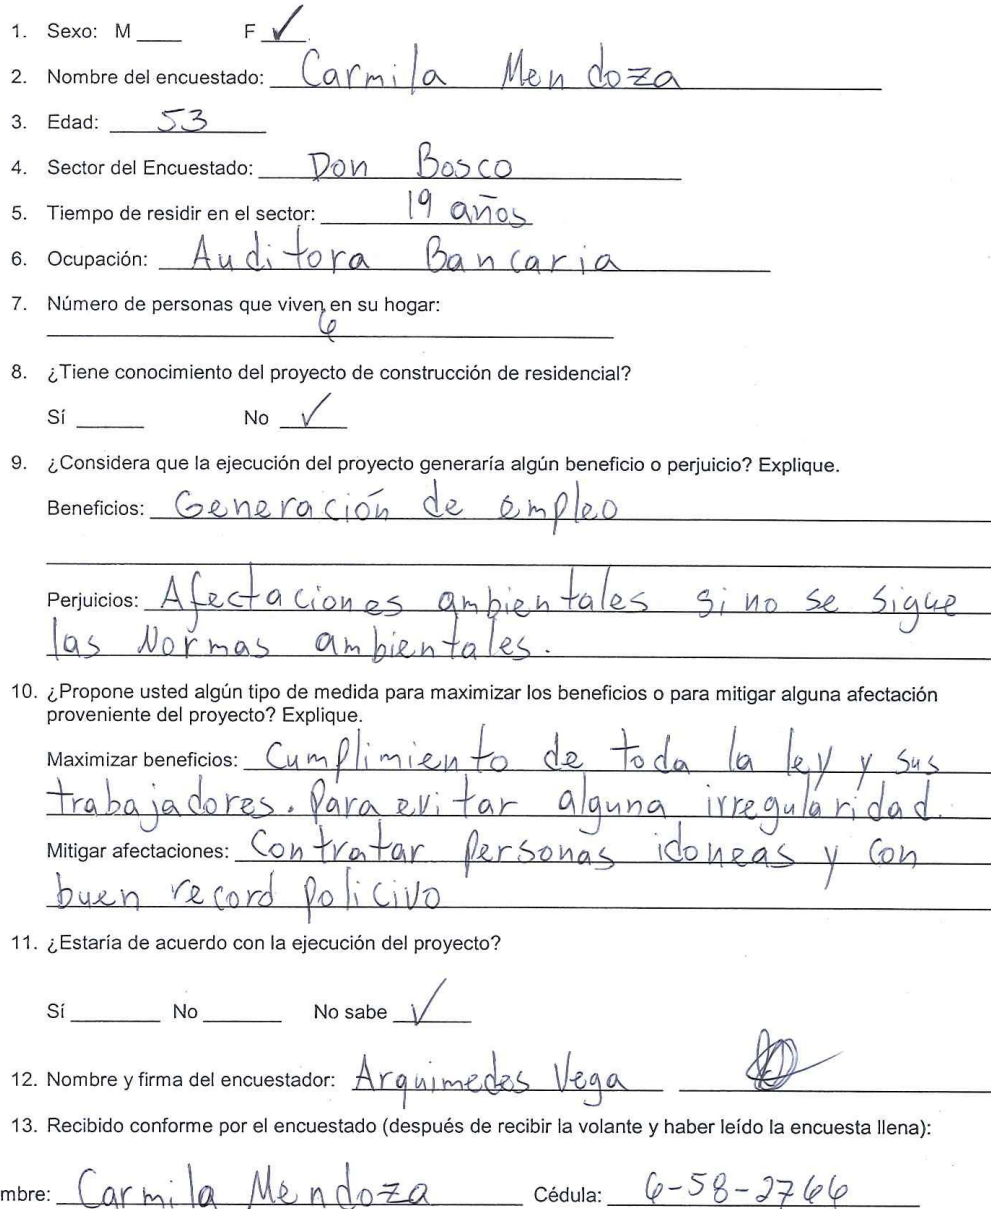 1. Sexo: M ____ F ✓
2. Nombre del encuestado: Carmila Mendoza
3. Edad: 53
4. Sector del Encuestado: Don Bosco
5. Tiempo de residir en el sector: 19 años
6. Ocupación: Auditora Bancaria
7. Número de personas que viven en su hogar:
6
8. ¿Tiene conocimiento del proyecto de construcción de residencial?
Sí ____ No ✓
9. ¿Considera que la ejecución del proyecto generaría algún beneficio o perjuicio? Explique.
Beneficios: Generación de empleo
Perjuicios: Afectaciones ambientales si no se sigue
las Normas ambientales.
10. ¿Propone usted algún tipo de medida para maximizar los beneficios o para mitigar alguna afectación
proveniente del proyecto? Explique.
Maximizar beneficios: Cumplimiento de toda la ley y sus
trabajadores. Para evitar alguna irregularidad.
Mitigar afectaciones: Contratar personas idoneas y con
buen record policivo
11. ¿Estaría de acuerdo con la ejecución del proyecto?
Sí ____ No ____ No sabe ✓
12. Nombre y firma del encuestador: Arquimedes Vega
13. Recibido conforme por el encuestado (después de recibir la volante y haber leído la encuesta llena):
mbre: Carmila Mendoza Cédula: 6-58-2766